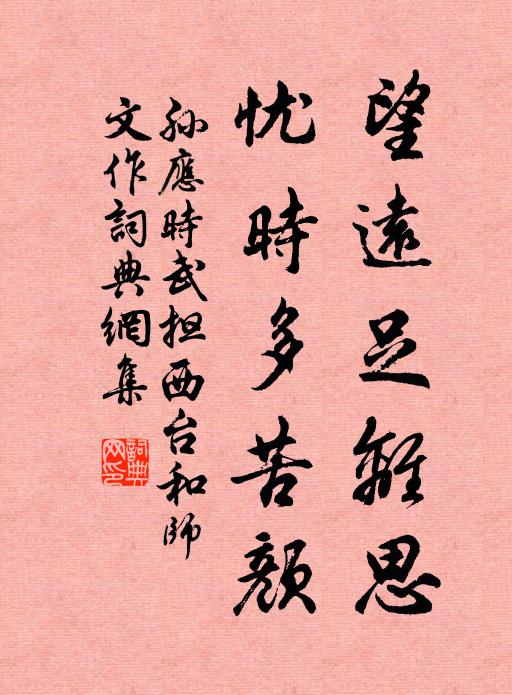 望遠足離思
忧時多苦顏
孙應時武担西台和師
文作詞典網集
詞典網印